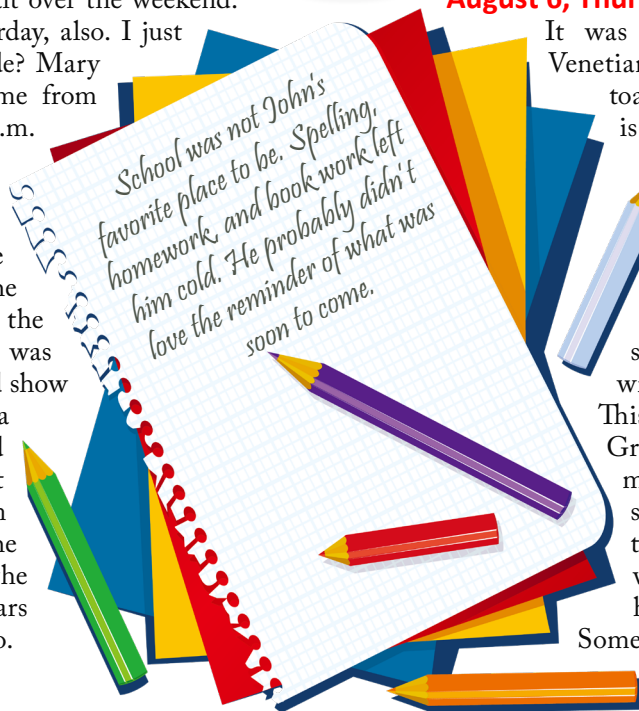 it over the weekend.
rday, also. I just
de? Mary
me from
.m.
e
ne
the
was
d show
a
d
t
n
ne
he
ars
o.
School was not John's
favorite place to be. Spelling,
homework, and book work left
him cold. He probably didn't
love the reminder of what was
soon to come.
August 6, Thur
It was
Venetian
toa
is
s
wi
This
Gr
m
s
t
v
h
Some